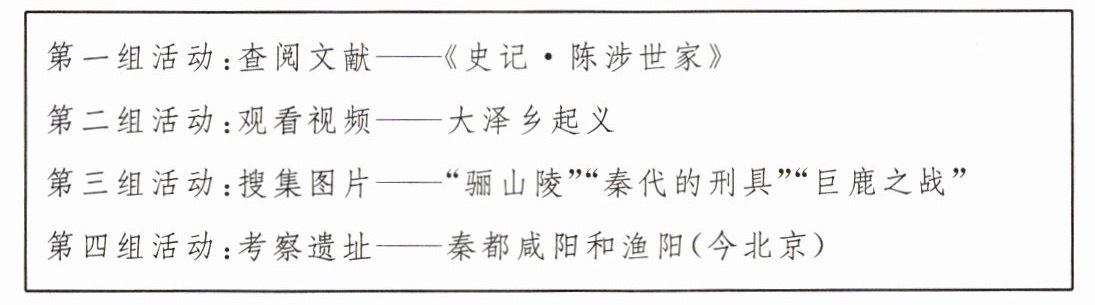 第一组活动:查阅文献——《史记·陈涉世家》
第二组活动:观看视频——大泽乡起义
第三组活动:搜集图片——“骊山陵”“秦代的刑具”“巨鹿之战”
第四组活动:考察遗址——秦都咸阳和渔阳(今北京)